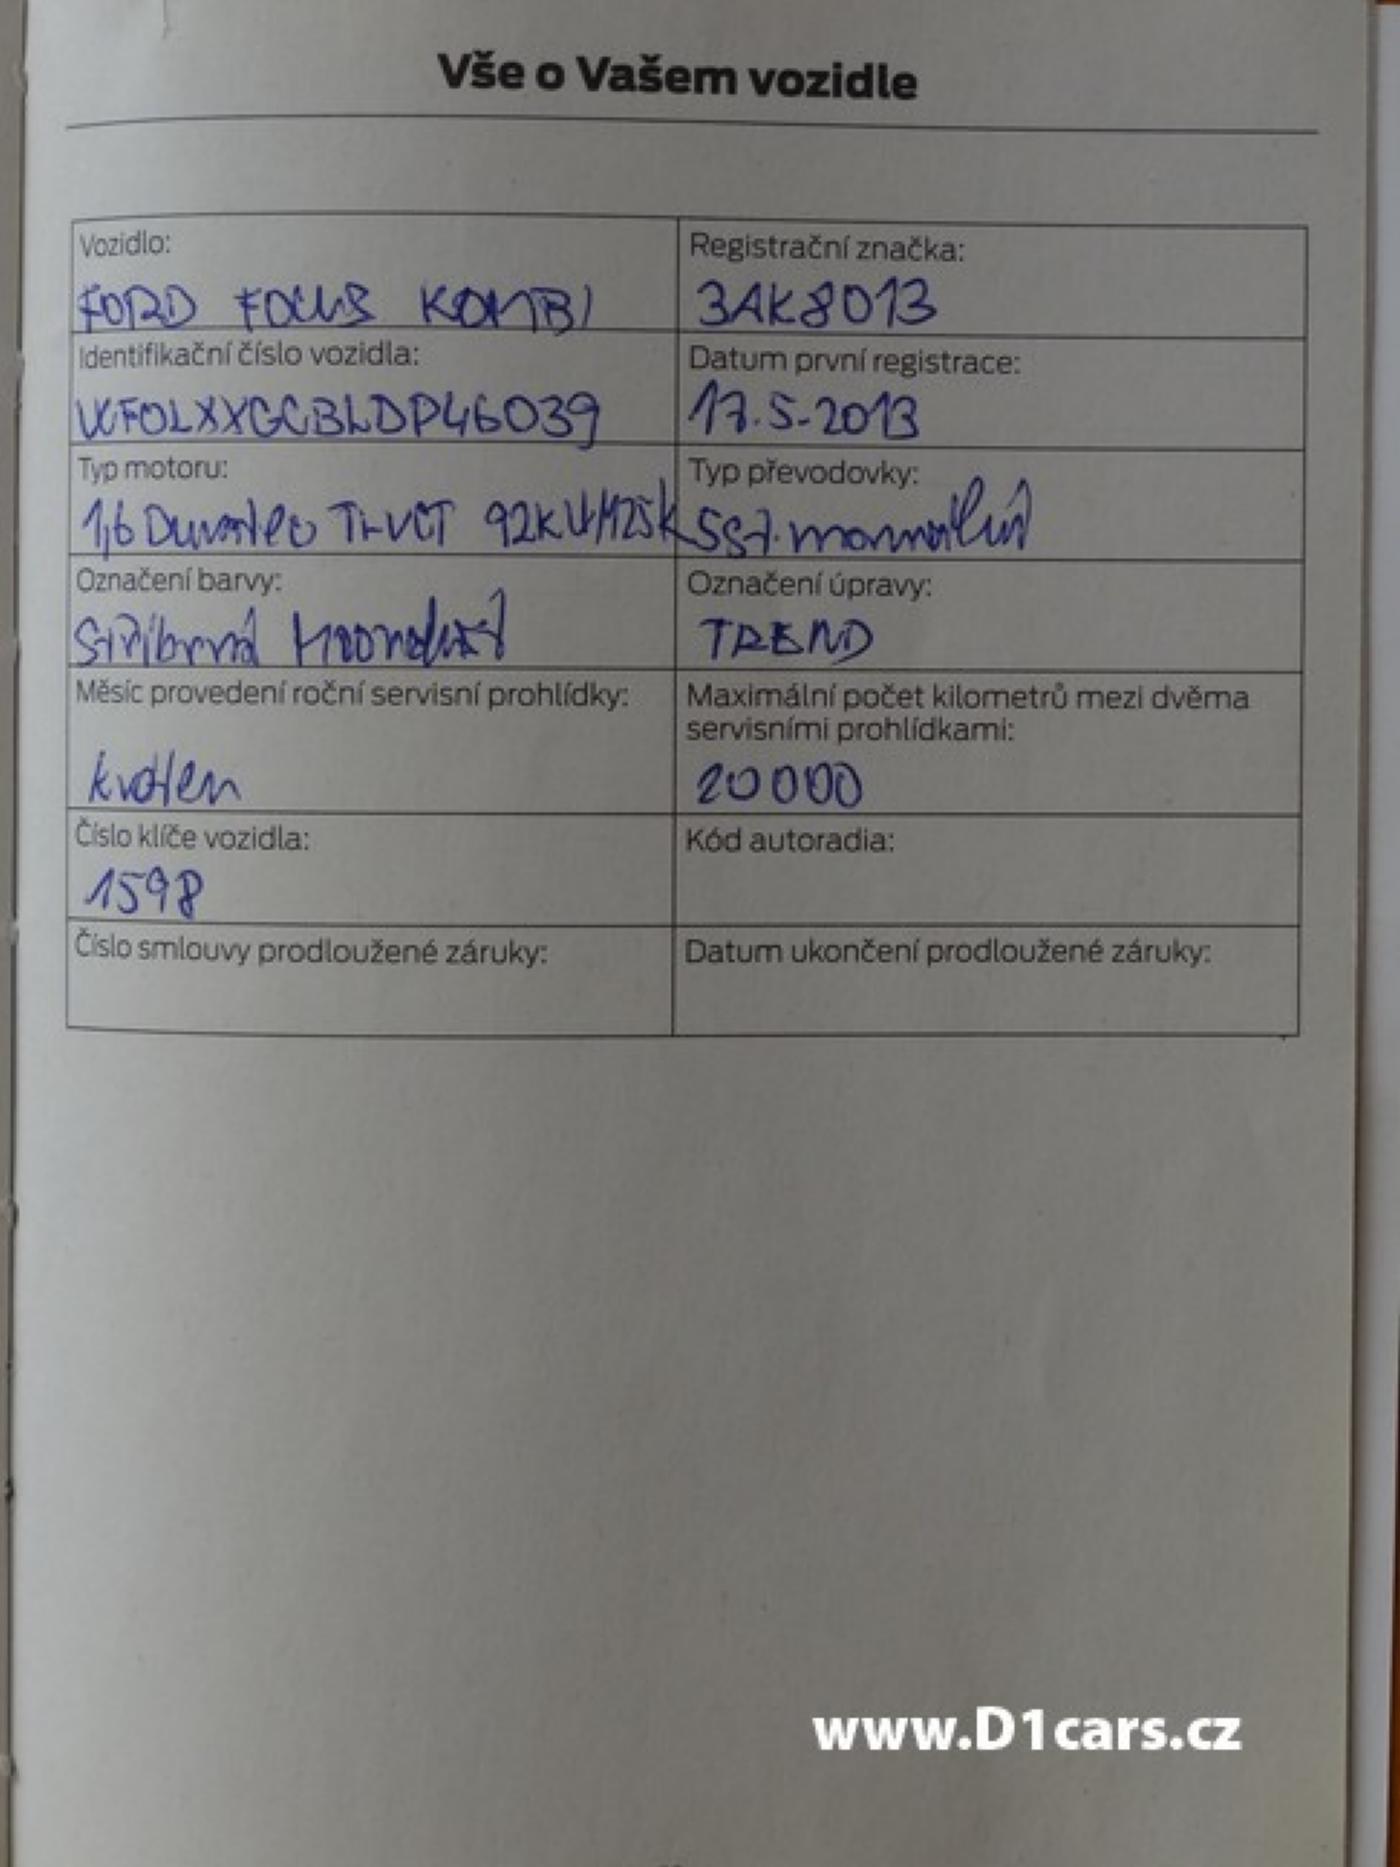 Vše o Vašem vozidle
Vozidlo:
FORD FOCUS KOMBI
Registrační značka:
3AK8013
Identifikační číslo vozidla:
WF0LXXGCBLDP46039
Datum první registrace:
17.5.2013
Typ motoru:
1,6 Duratec Ti-VCT 92KW/125k
Typ převodovky:
5st. manuální
Označení barvy:
Stříbrná
Označení úpravy:
TREND
Měsíc provedení roční servisní prohlídky:
květen
Maximální počet kilometrů mezi dvěma
servisními prohlídkami:
20000
Číslo klíče vozidla:
1598
Kód autoradia:
Číslo smlouvy prodloužené záruky:
Datum ukončení prodloužené záruky:
www.D1cars.cz